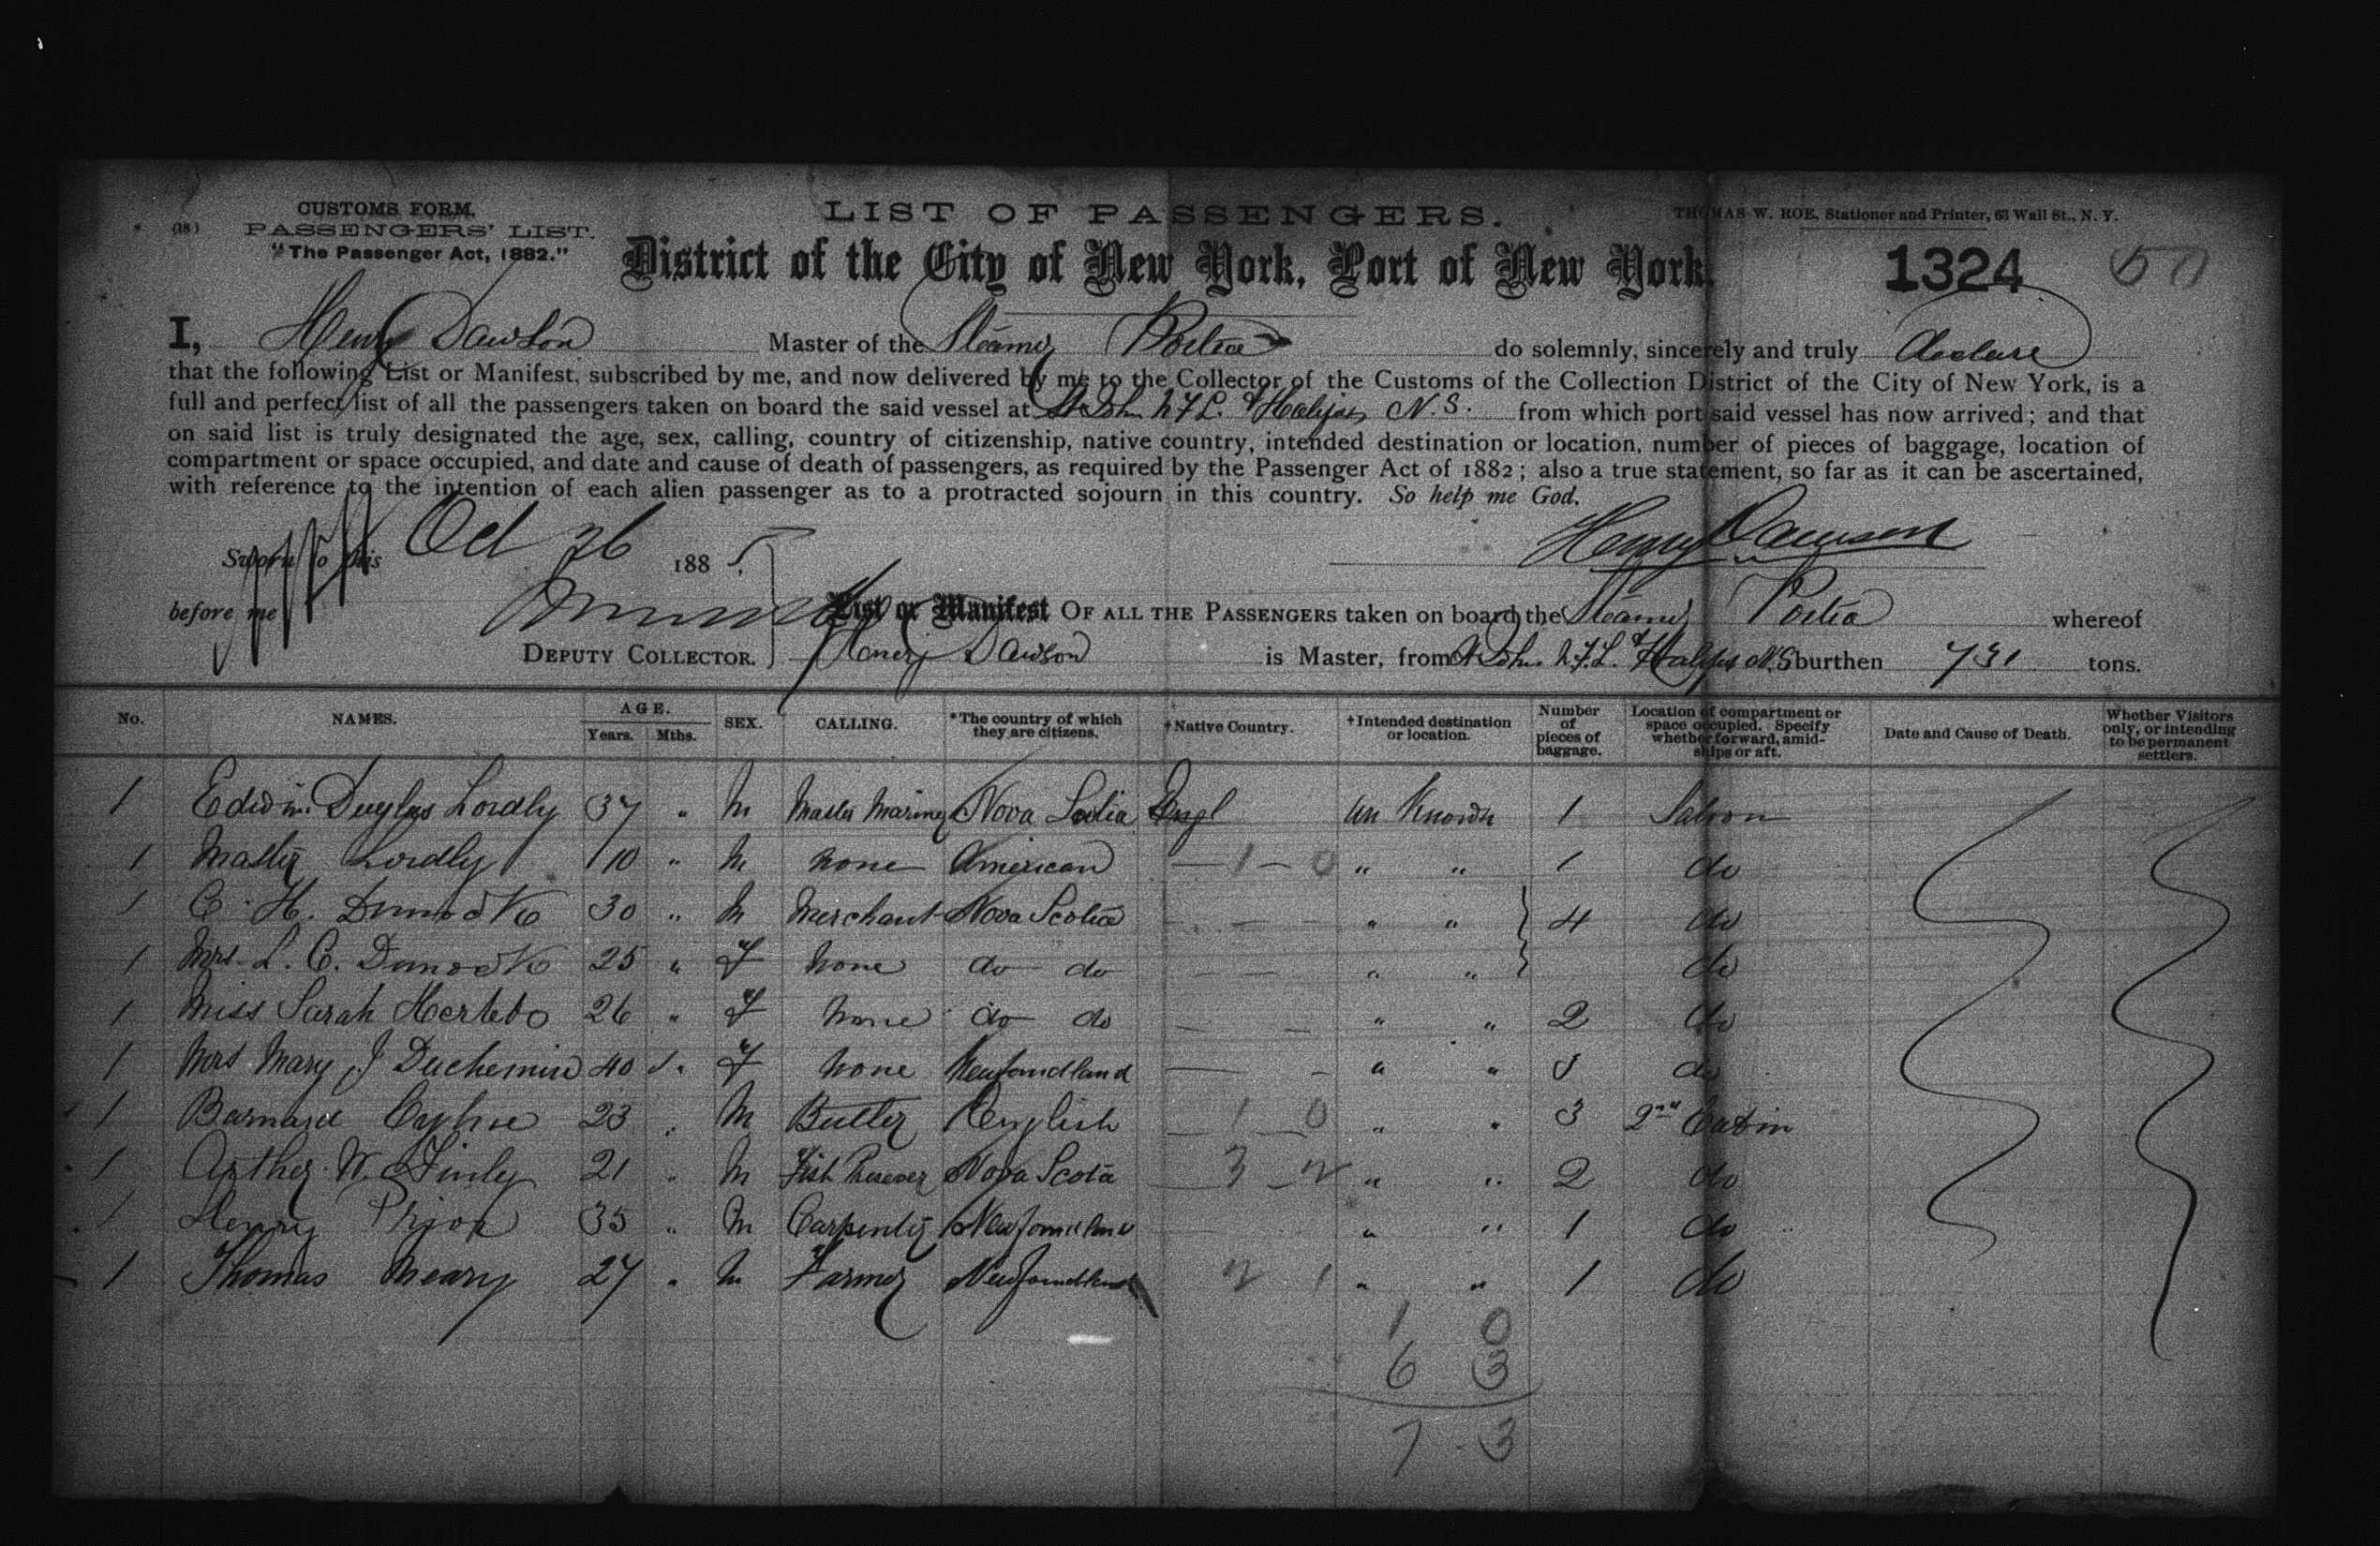 CUSTOMS FORM.
(18) PASSENGERS' LIST.
"The Passenger Act, 1882."
LIST OF PASSENGERS.
THOMAS W. ROE, Stationer and Printer, 63 Wall St., N. Y.
District of the City of New York, Port of New York.
1324 50
I, Henry Dawson Master of the Steamer Portia do solemnly, sincerely and truly declare
that the following List or Manifest, subscribed by me, and now delivered by me to the Collector of the Customs of the Collection District of the City of New York, is a
full and perfect list of all the passengers taken on board the said vessel at St John N F L. & Halifax N. S. from which port said vessel has now arrived; and that
on said list is truly designated the age, sex, calling, country of citizenship, native country, intended destination or location, number of pieces of baggage, location of
compartment or space occupied, and date and cause of death of passengers, as required by the Passenger Act of 1882; also a true statement, so far as it can be ascertained,
with reference to the intention of each alien passenger as to a protracted sojourn in this country. So help me God.
Sworn to this Oct 26 1885.
Henry Dawson
before me
List or Manifest OF ALL THE PASSENGERS taken on board the Steamer Portia whereof
DEPUTY COLLECTOR. Henery Dawson is Master, from St John. N.F.L. & Halifax N.S burthen 731 tons.
No. NAMES. AGE. Years. Mths. SEX. CALLING. *The country of which they are citizens. †Native Country. †Intended destination or location. Number of pieces of baggage. Location of compartment or space occupied. Specify whether forward, amidships or aft. Date and Cause of Death. Whether Visitors only, or intending to be permanent settlers.
1 Edwin Duglas Lordly 37 " M Master Mariner Nova Scotia Engl un Known 1 Saloon
1 Master Lordly 10 " M none American — 1 — 0 " " 1 do
1 C. H. Dimock 30 " M Merchant Nova Scotia " " 4 do
1 Mrs L. C. Dimock 25 " F none do do " " do
1 Miss Sarah 26 " F none do do " " 2 do
1 Mrs Mary J Duchemin 40 " F none Newfoundland " " do
1 Barnard 23 " M Butler English 1 0 " " 3 2nd Cabin
1 Arther W. Finly 21 " M Fish Preserver Nova Scota 3 2 " " 2 do
1 Henry Prior 35 " M Carpenter Newfoundland " " 1 do
1 Thomas Neary 27 " M Farmer Newfoundland 2 1 " " 1 do
1 0
6 3
7 3